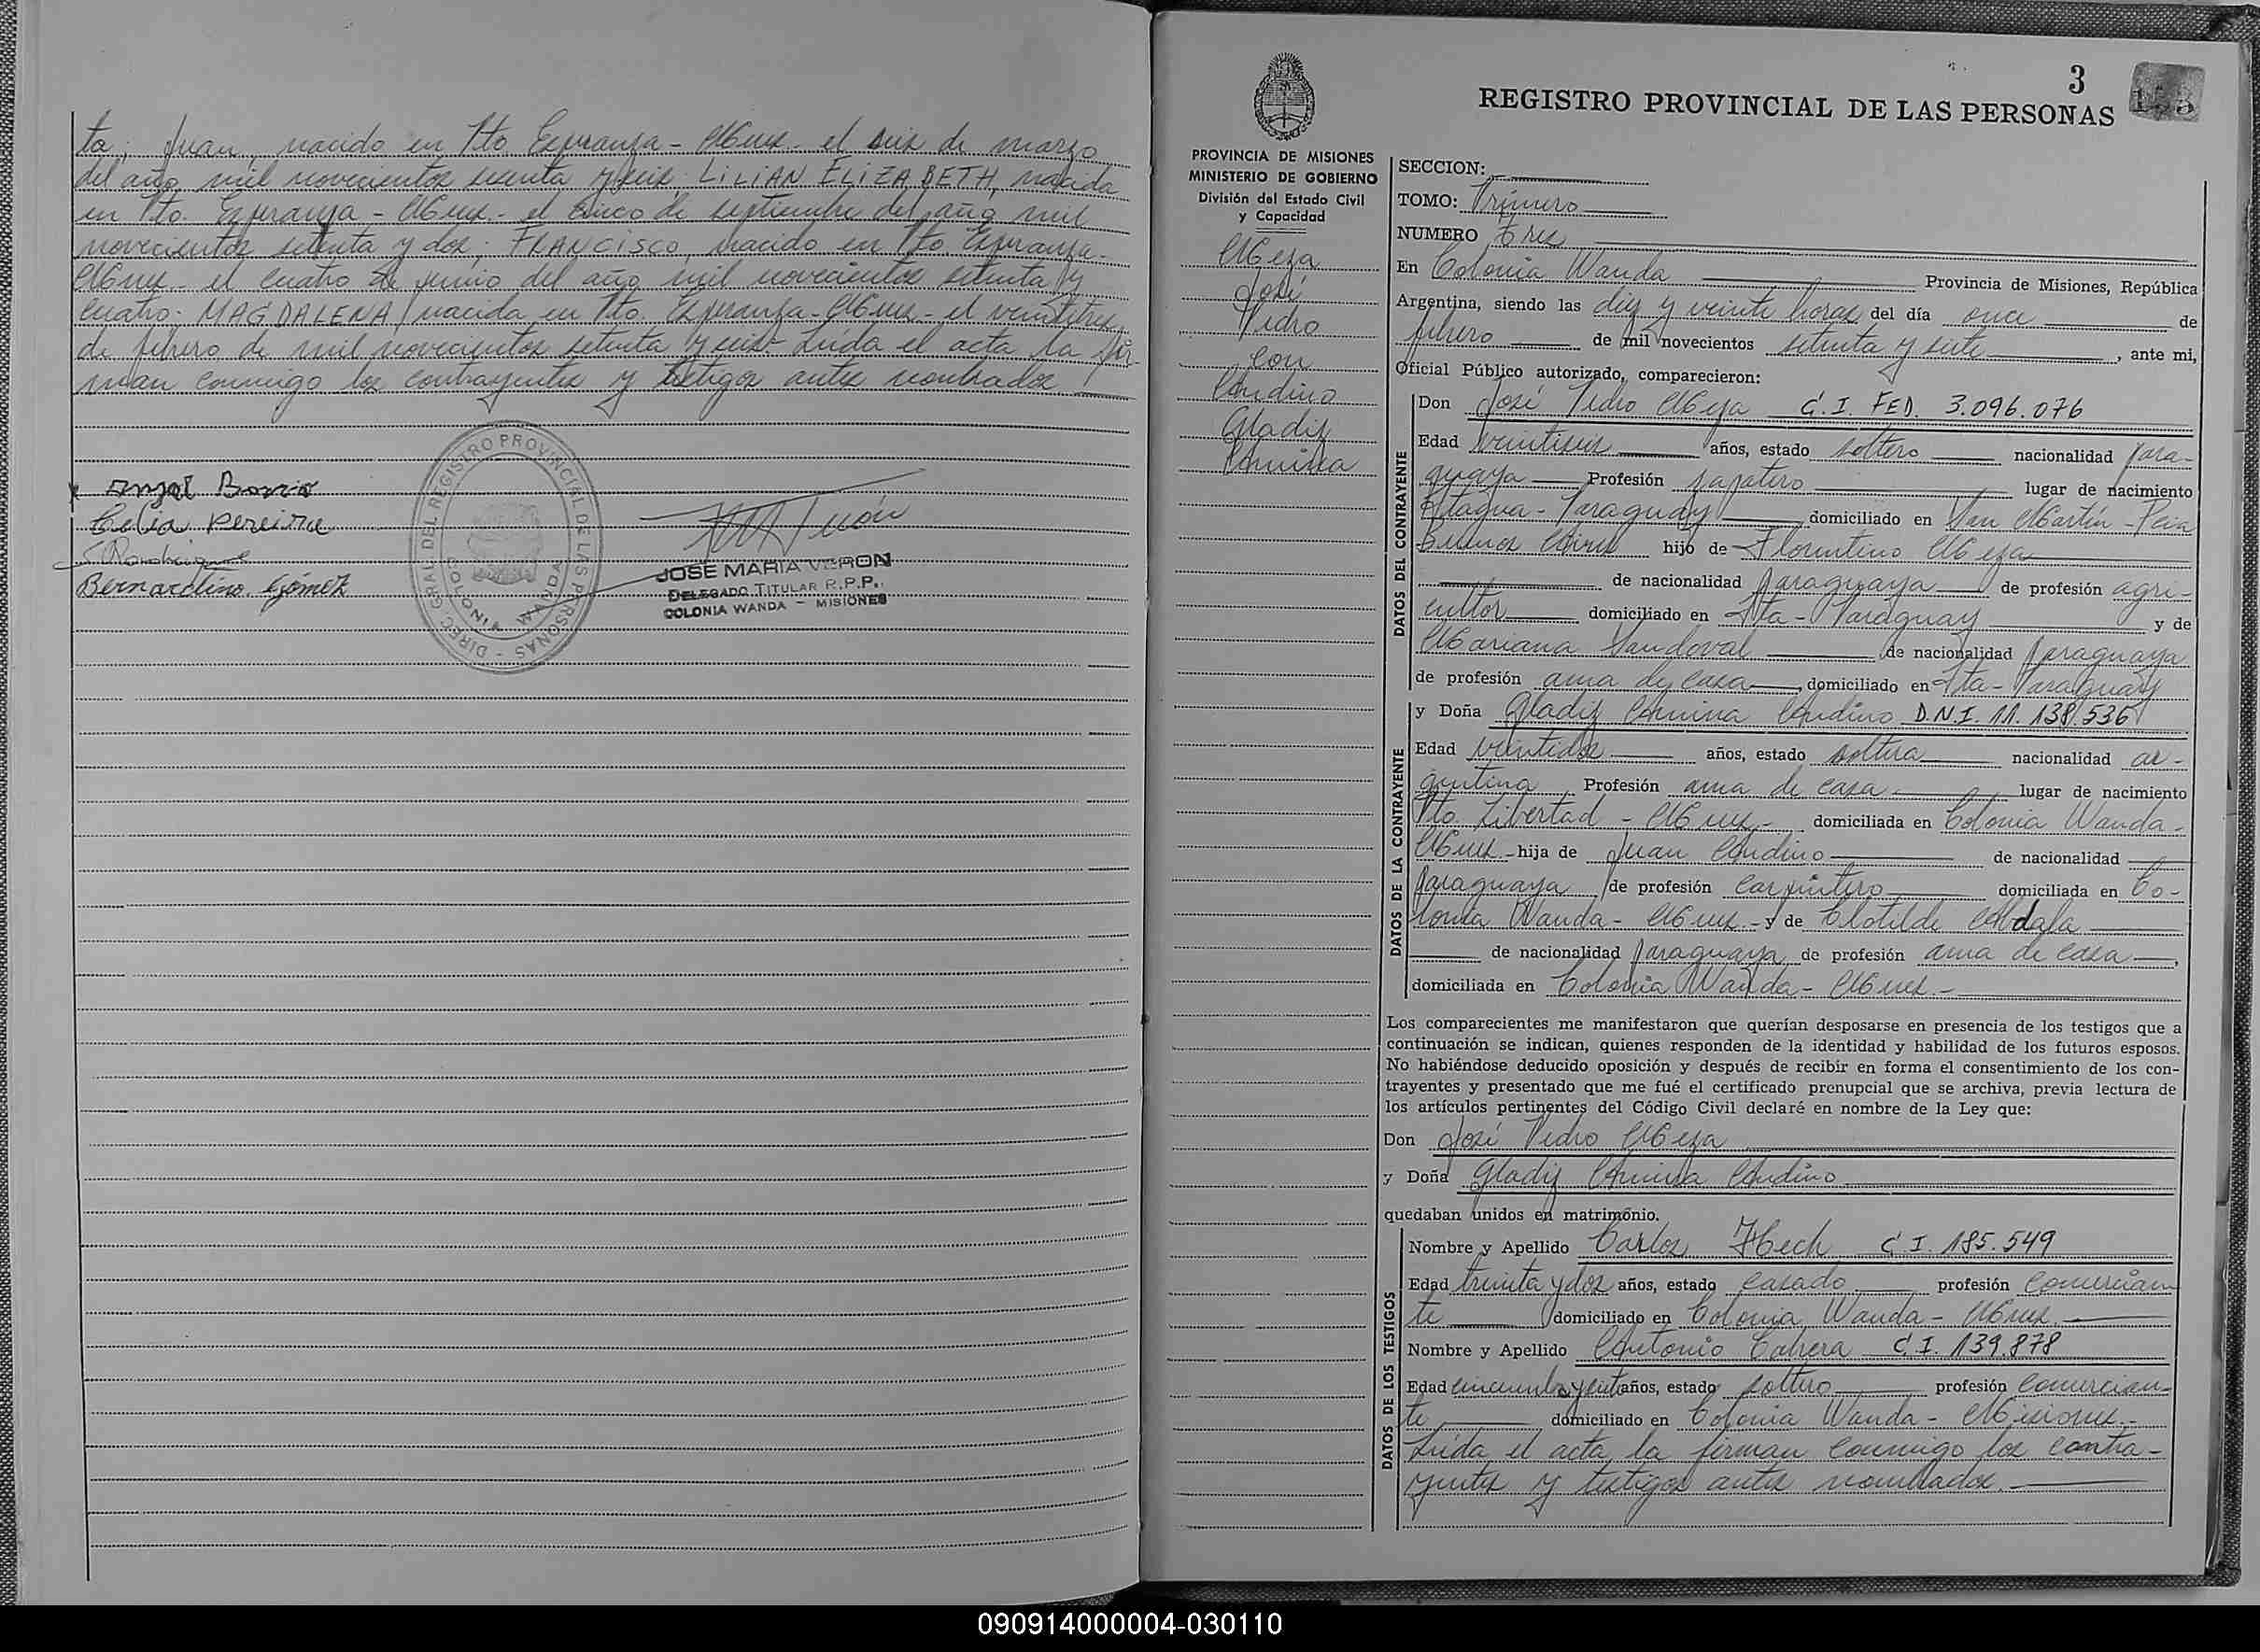 ta; Juan, nacido en Pto. Esperanza - Mnes - el seis de marzo
del año mil novecientos sesenta y seis; LILIAN ELIZABETH, nacida
en Pto. Esperanza - Mnes. - el cinco de septiembre del año mil
novecientos setenta y dos; FRANCISCO, nacido en Pto. Esperanza -
Mnes - el cuatro de junio del año mil novecientos setenta y
cuatro. MAGDALENA, nacida en Pto. Esperanza - Mnes - el veintitres
de febrero de mil novecientos setenta y seis. Leída el acta la fir-
man conmigo los contrayentes y testigos antes nombrados
Celia Pereira
Bernardino Gómez
DIREC. GRAL. DEL REGISTRO PROVINCIAL DE LAS PERSONAS
COLONIA WANDA
JOSE MARIA VERON
DELEGADO TITULAR R.P.P.
COLONIA WANDA - MISIONES
3
REGISTRO PROVINCIAL DE LAS PERSONAS
PROVINCIA DE MISIONES
MINISTERIO DE GOBIERNO
División del Estado Civil
y Capacidad
Meza
José
Pedro
con
Andino
Gladiz
Armina
SECCION:
TOMO: Primero
NUMERO Tres
En Colonia Wanda Provincia de Misiones, República
Argentina, siendo las diez y veinte horas del día once de
febrero de mil novecientos setenta y siete, ante mi,
Oficial Público autorizado, comparecieron:
DATOS DEL CONTRAYENTE
Don José Pedro Meza C.I. FED. 3.096.076
Edad veintiseis años, estado soltero nacionalidad para-
guaya Profesión zapatero lugar de nacimiento
Paraguay, domiciliado en San Martín - Pcia
Buenos Aires hijo de Florentino Meza
de nacionalidad paraguaya de profesión agri-
cultor domiciliado en Ita - Paraguay y de
Mariana Sandoval de nacionalidad paraguaya
de profesión ama de casa, domiciliado en Ita - Paraguay
DATOS DE LA CONTRAYENTE
y Doña Gladiz Armina Andino D.N.I. 11.138.536
Edad veintidos años, estado soltera nacionalidad ar-
gentina Profesión ama de casa lugar de nacimiento
Pto. Libertad - Mnes - domiciliada en Colonia Wanda -
Mnes - hija de Juan Andino de nacionalidad
paraguaya de profesión carpintero domiciliada en Co-
lonia Wanda - Mnes - y de Clotilde
de nacionalidad paraguaya de profesión ama de casa,
domiciliada en Colonia Wanda - Mnes -
Los comparecientes me manifestaron que querían desposarse en presencia de los testigos que a
continuación se indican, quienes responden de la identidad y habilidad de los futuros esposos.
No habiéndose deducido oposición y después de recibir en forma el consentimiento de los con-
trayentes y presentado que me fué el certificado prenupcial que se archiva, previa lectura de
los artículos pertinentes del Código Civil declaré en nombre de la Ley que:
Don José Pedro Meza
y Doña Gladiz Armina Andino
quedaban unidos en matrimonio.
DATOS DE LOS TESTIGOS
Nombre y Apellido Carlos Hech C.I. 185.549
Edad treinta y dos años, estado casado profesión comercian
te domiciliado en Colonia Wanda - Mnes.
Nombre y Apellido Antonio Cabrera C.I. 139.878
Edad cincuenta y siete años, estado soltero profesión comercian-
te domiciliado en Colonia Wanda - Misiones.-
Leída el acta la firman conmigo los contra-
yentes y testigos antes nombrados.
090914000004-030110